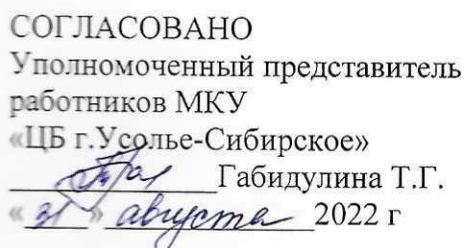 СОГЛАСОВАНО
Уполномоченный представитель
работников МКУ
«ЦБ г.Усолье-Сибирское»
Габидулина Т.Г.
«31» августа 2022 г